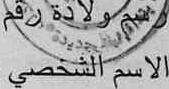 رسم ولادة رقم
الاسم الشخصي